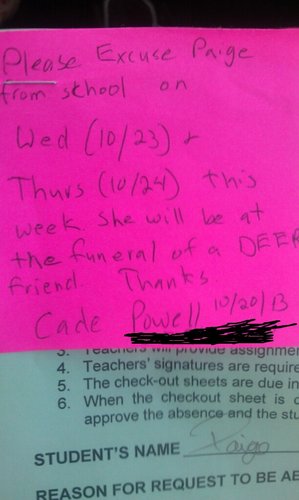 Please Excuse Paige
from school on
Wed (10/23) +
Thurs (10/24) this
week. She will be at
the funeral of a DEER
friend. Thanks
Cade Powell 10/20/13
3. Teachers will provide assignme
4. Teachers' signatures are require
5. The check-out sheets are due in
6. When the checkout sheet is c
approve the absence and the stu
STUDENT'S NAME Paige
REASON FOR REQUEST TO BE AB